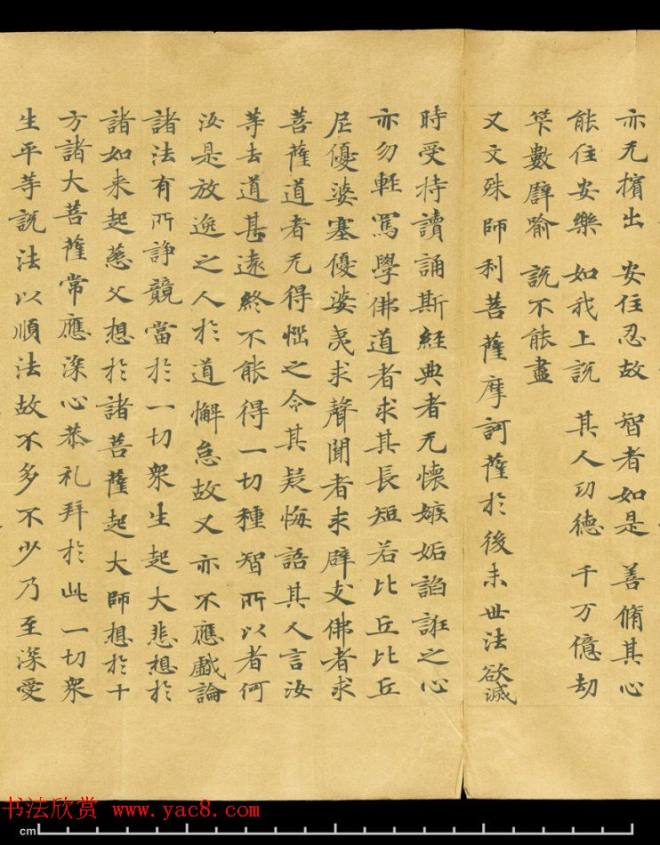 亦无擯出　安住忍故　智者如是　善脩其心
能住安樂　如我上說　其人功德　千万億劫
筭數辟喻　說不能盡
又文殊師利菩薩摩訶薩於後末世法欲滅
時受持讀誦斯經典者无懷嫉妬諂誑之心
亦勿輕罵學佛道者求其長短若比丘比丘
尼優婆塞優婆夷求聲聞者求辟支佛者求
菩薩道者无得惱之令其疑悔語其人言汝
等去道甚遠終不能得一切種智所以者何
汝是放逸之人於道懈怠故又亦不應戲論
諸法有所諍競當於一切衆生起大悲想於
諸如来起慈父想於諸菩薩起大師想於十
方諸大菩薩常應深心恭礼拜於此一切衆
生平等說法以順法故不多不少乃至深愛
书法欣赏 www.yac8.com
cm